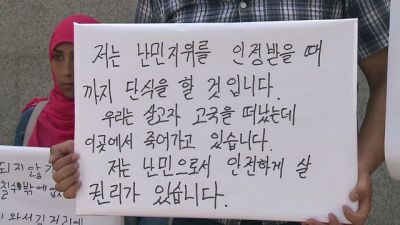 저는 난민지위를 인정받을 때
까지 단식을 할 것입니다.
우리는 살고자 고국을 떠났는데
이곳에서 죽어가고 있습니다.
저는 난민으로서 안전하게 살
권리가 있습니다.
되지 않
칠수밖에
와서 길거리에